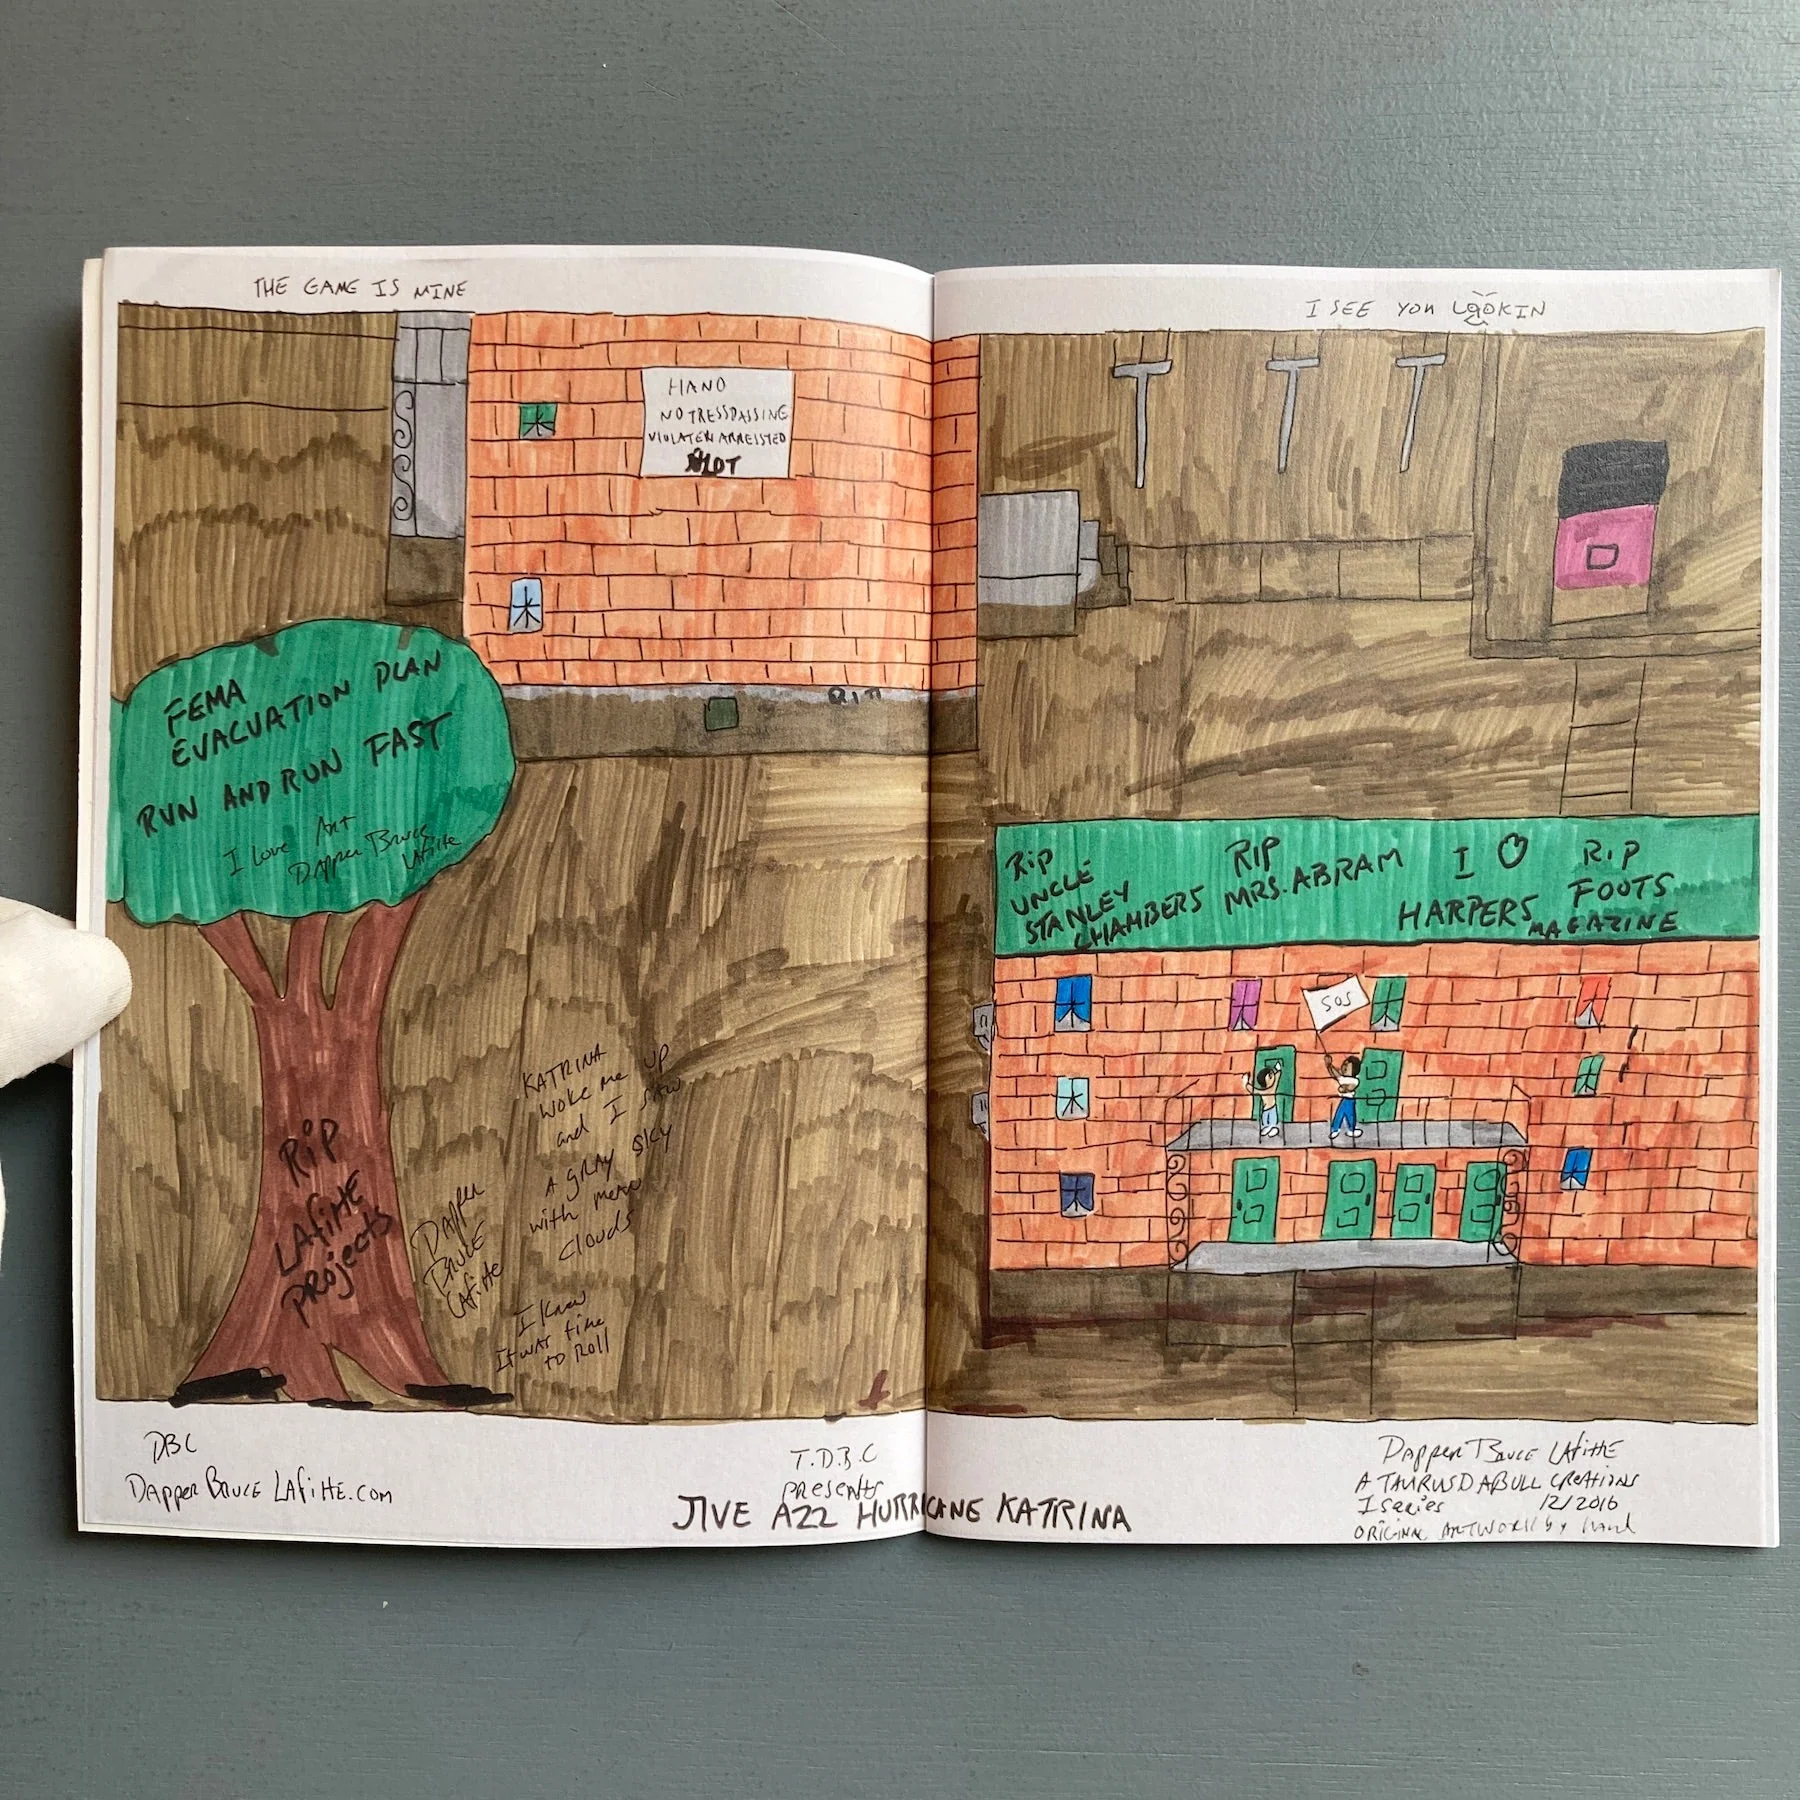 THE GAME IS MINE
HANO
NO TRESSPASSING
VIOLATEN ARRESSTED
FEMA
EVACUATION PLAN
RUN AND RUN FAST
I Love Art
Dapper Bruce
Lafitte
RIP
LAfittE
PROjects
DAPPER
BRUCE
LAfitte
KATRINA
woke me UP
and I SAW
A GRAY SKY
with mean
clouds
I Knew
It was time
to Roll
DBC
DAPPER BRUCE LAfittE.com
T.D.B.C
presents
JIVE AZZ HURRICANE KATRINA
I SEE YOU LOOKIN
Rip
UNCLE
STANLEY
CHAMBERS
RIP
MRS. ABRAM
I
HARPERS
MAGAZINE
R.I.P
FOOTS
SOS
DAPPER BRUCE LAfittE
A TAURUS DABULL CREATIONS
I series 12/2016
ORIGINAL ARTWORK by hand